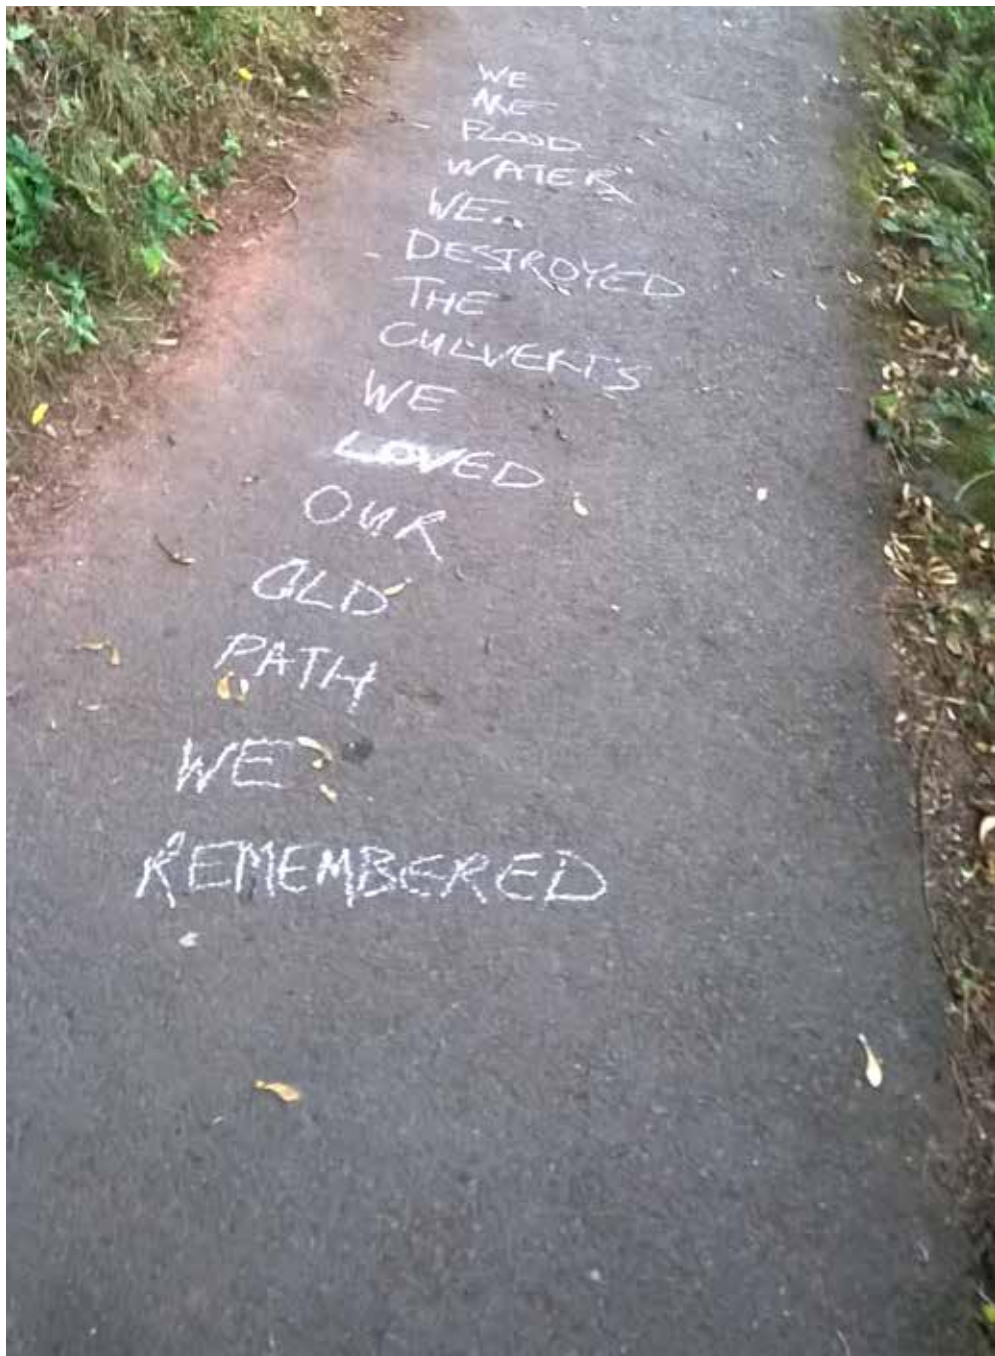 WE
ARE
FLOOD
WATER
WE
DESTROYED
THE
CULVERTS
WE
LOVED
OUR
OLD
PATH
WE
REMEMBERED